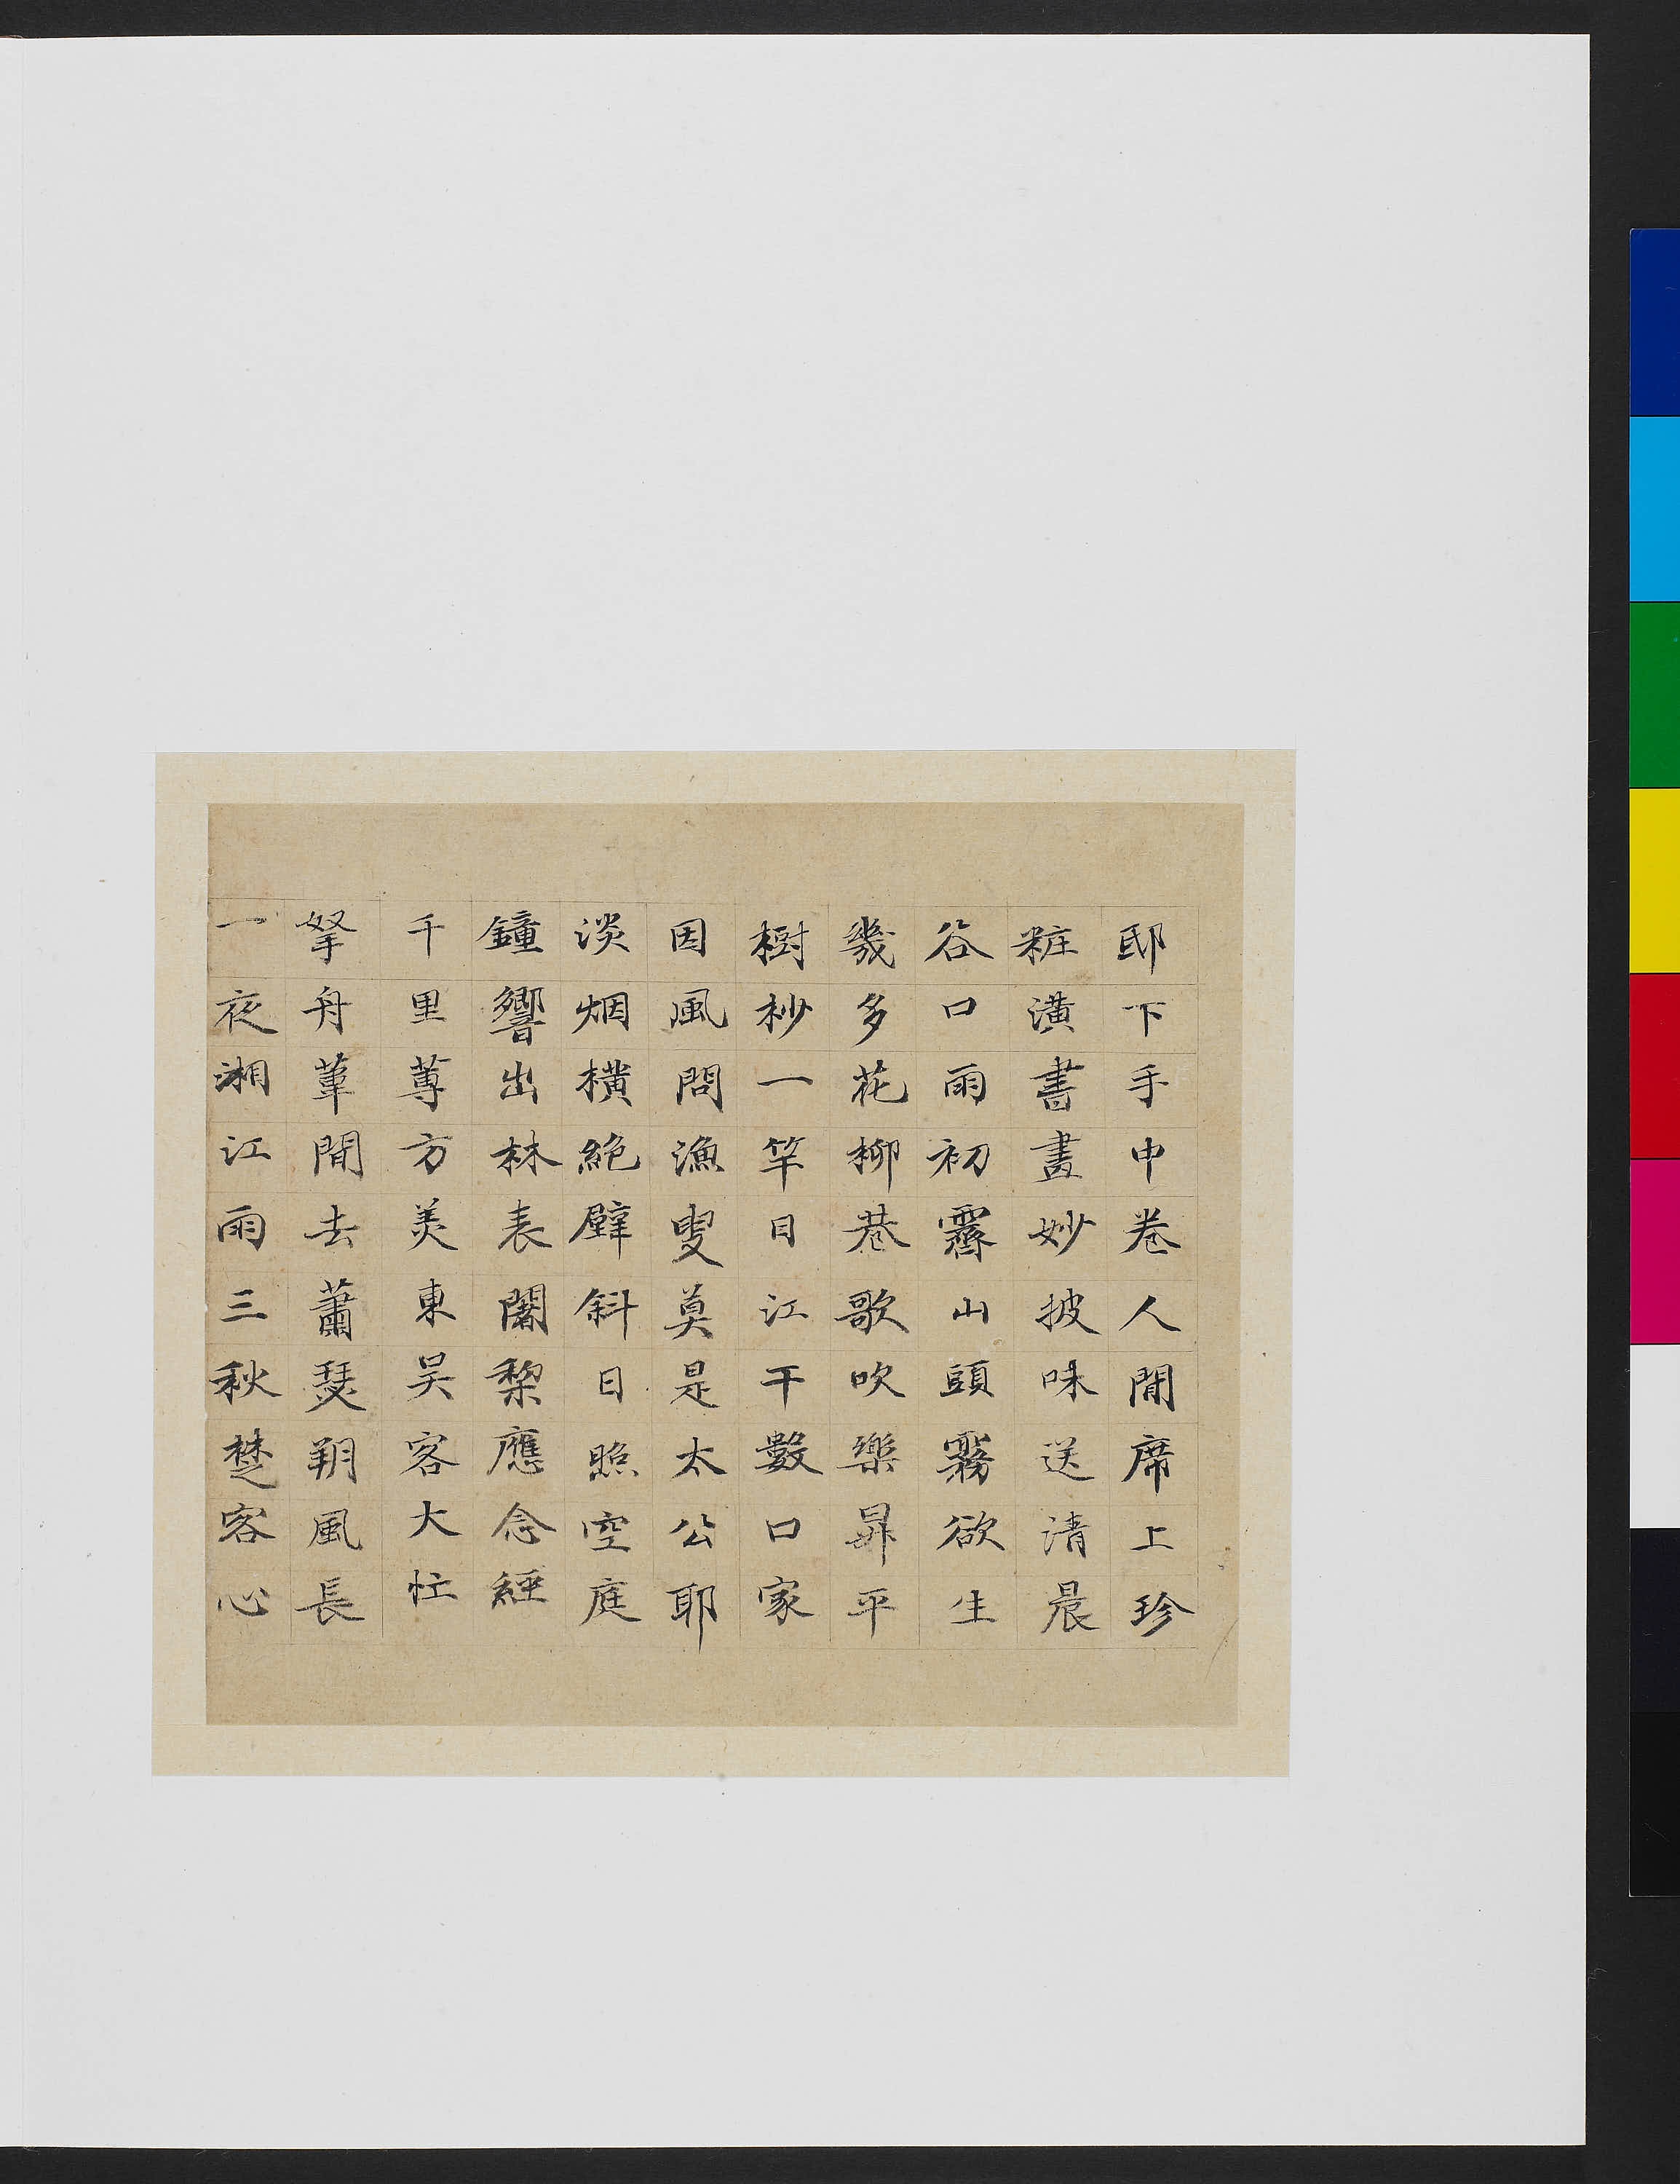 邸下手中卷人間席上珍
粧潢書畫妙披味送清晨
谷口雨初霽山頭霧欲生
幾多花柳巷歌吹樂昇平
樹杪一竿日江干數口家
因風問漁叟莫是太公耶
淡烟橫絶壁斜日照空庭
鐘響出林表闍梨應念經
千里蓴方美東吴客大忙
拏舟葦間去蕭瑟朔風長
一夜湘江雨三秋楚客心